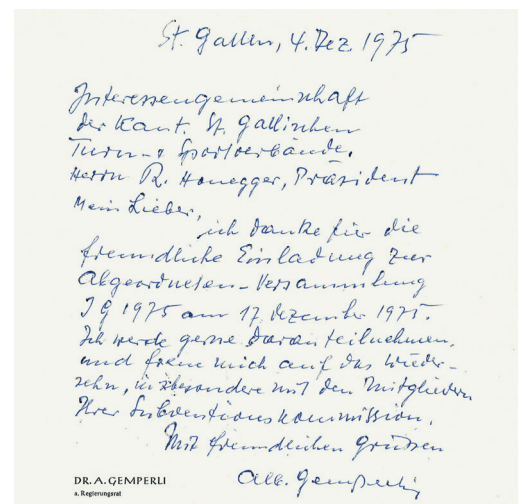 St. Gallen, 4. Dez 1975
Interessengemeinschaft
der Kant. St. Gallischen
Turn- & Sportverbände.
Herrn R. Honegger, Präsident
Mein Lieber,
ich danke für die
freundliche Einladung zur
Abgeordneten-Versammlung
IG 1975 am 17. Dezember 1975.
Ich werde gerne daran teilnehmen,
und freue mich auf das Wieder-
sehn, insbesondere mit den Mitgliedern
Ihrer Subventionskommission.
Mit freundlichen Grüssen
Alb. Gemperli
DR. A. GEMPERLI
a. Regierungsrat